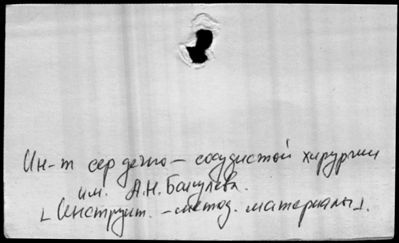 Ин-т сердечно-сосудистой хирургии
им. А.Н. Бакулева.
[Инструкт.-метод. материалы].